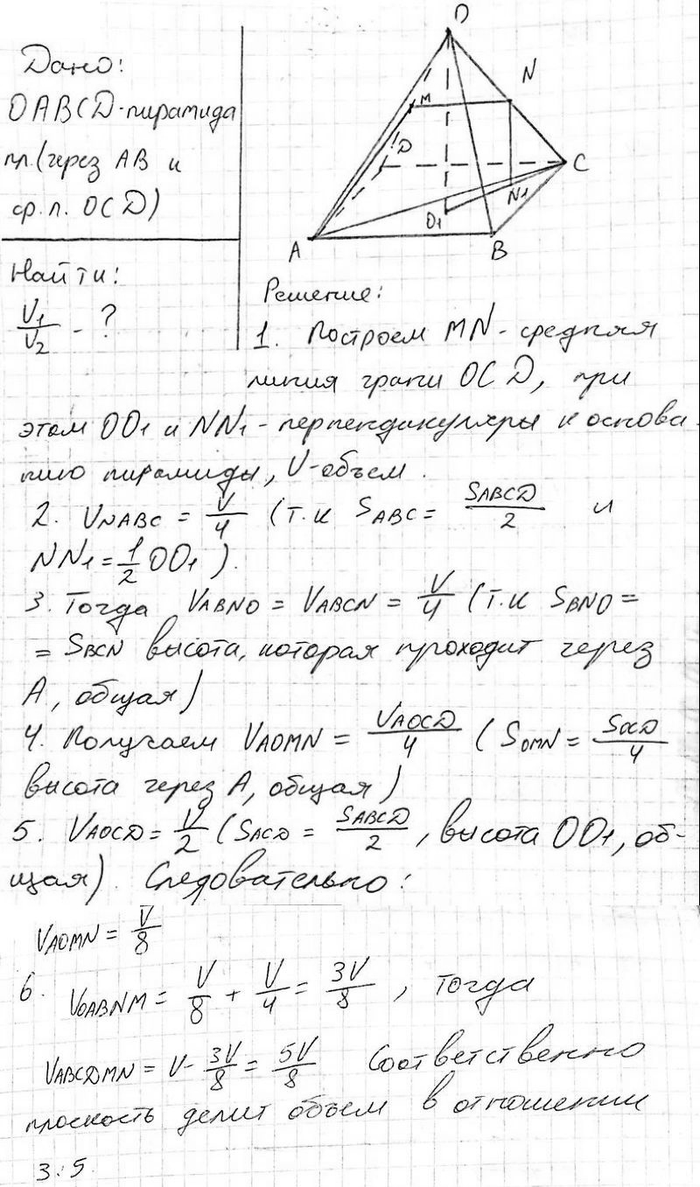 Дано:
OABCD-пирамида
пл.(через AB и
ср.л. OCD)
Найти:
V1/V2 - ?
O
M
N
D
C
O1
N1
A
B
Решение:
1. Построем MN-средняя
линия грани OCD, при
этом OO1 и NN1-перпендикуляры к основа-
нию пирамиды, V-объем.
2. VNABC = V/4 (т.к SABC = SABCD/2 и
NN1=1/2 OO1).
3. Тогда VABNO = VABCN = V/4 (т.к SBNO =
= SBCN высота, которая проходит через
A, общая)
4. Получаем VAOMN = VAOCD/4 (SOMN = SOCD/4
высота через A, общая)
5. VAOCD = V/2 (SACD = SABCD/2, высота OO1, об-
щая). Следовательно:
VAOMN = V/8
6. VOABNM = V/8 + V/4 = 3V/8, тогда
VABCDMN = V- 3V/8 = 5V/8 Соответственно
плоскость делит объем в отношении
3:5.